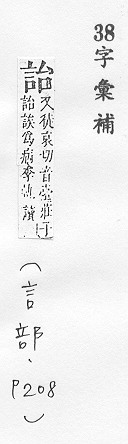 38字彙補
詒 又狄哀切音臺莊子
詒誒為病李軌讀
（言部、P208）